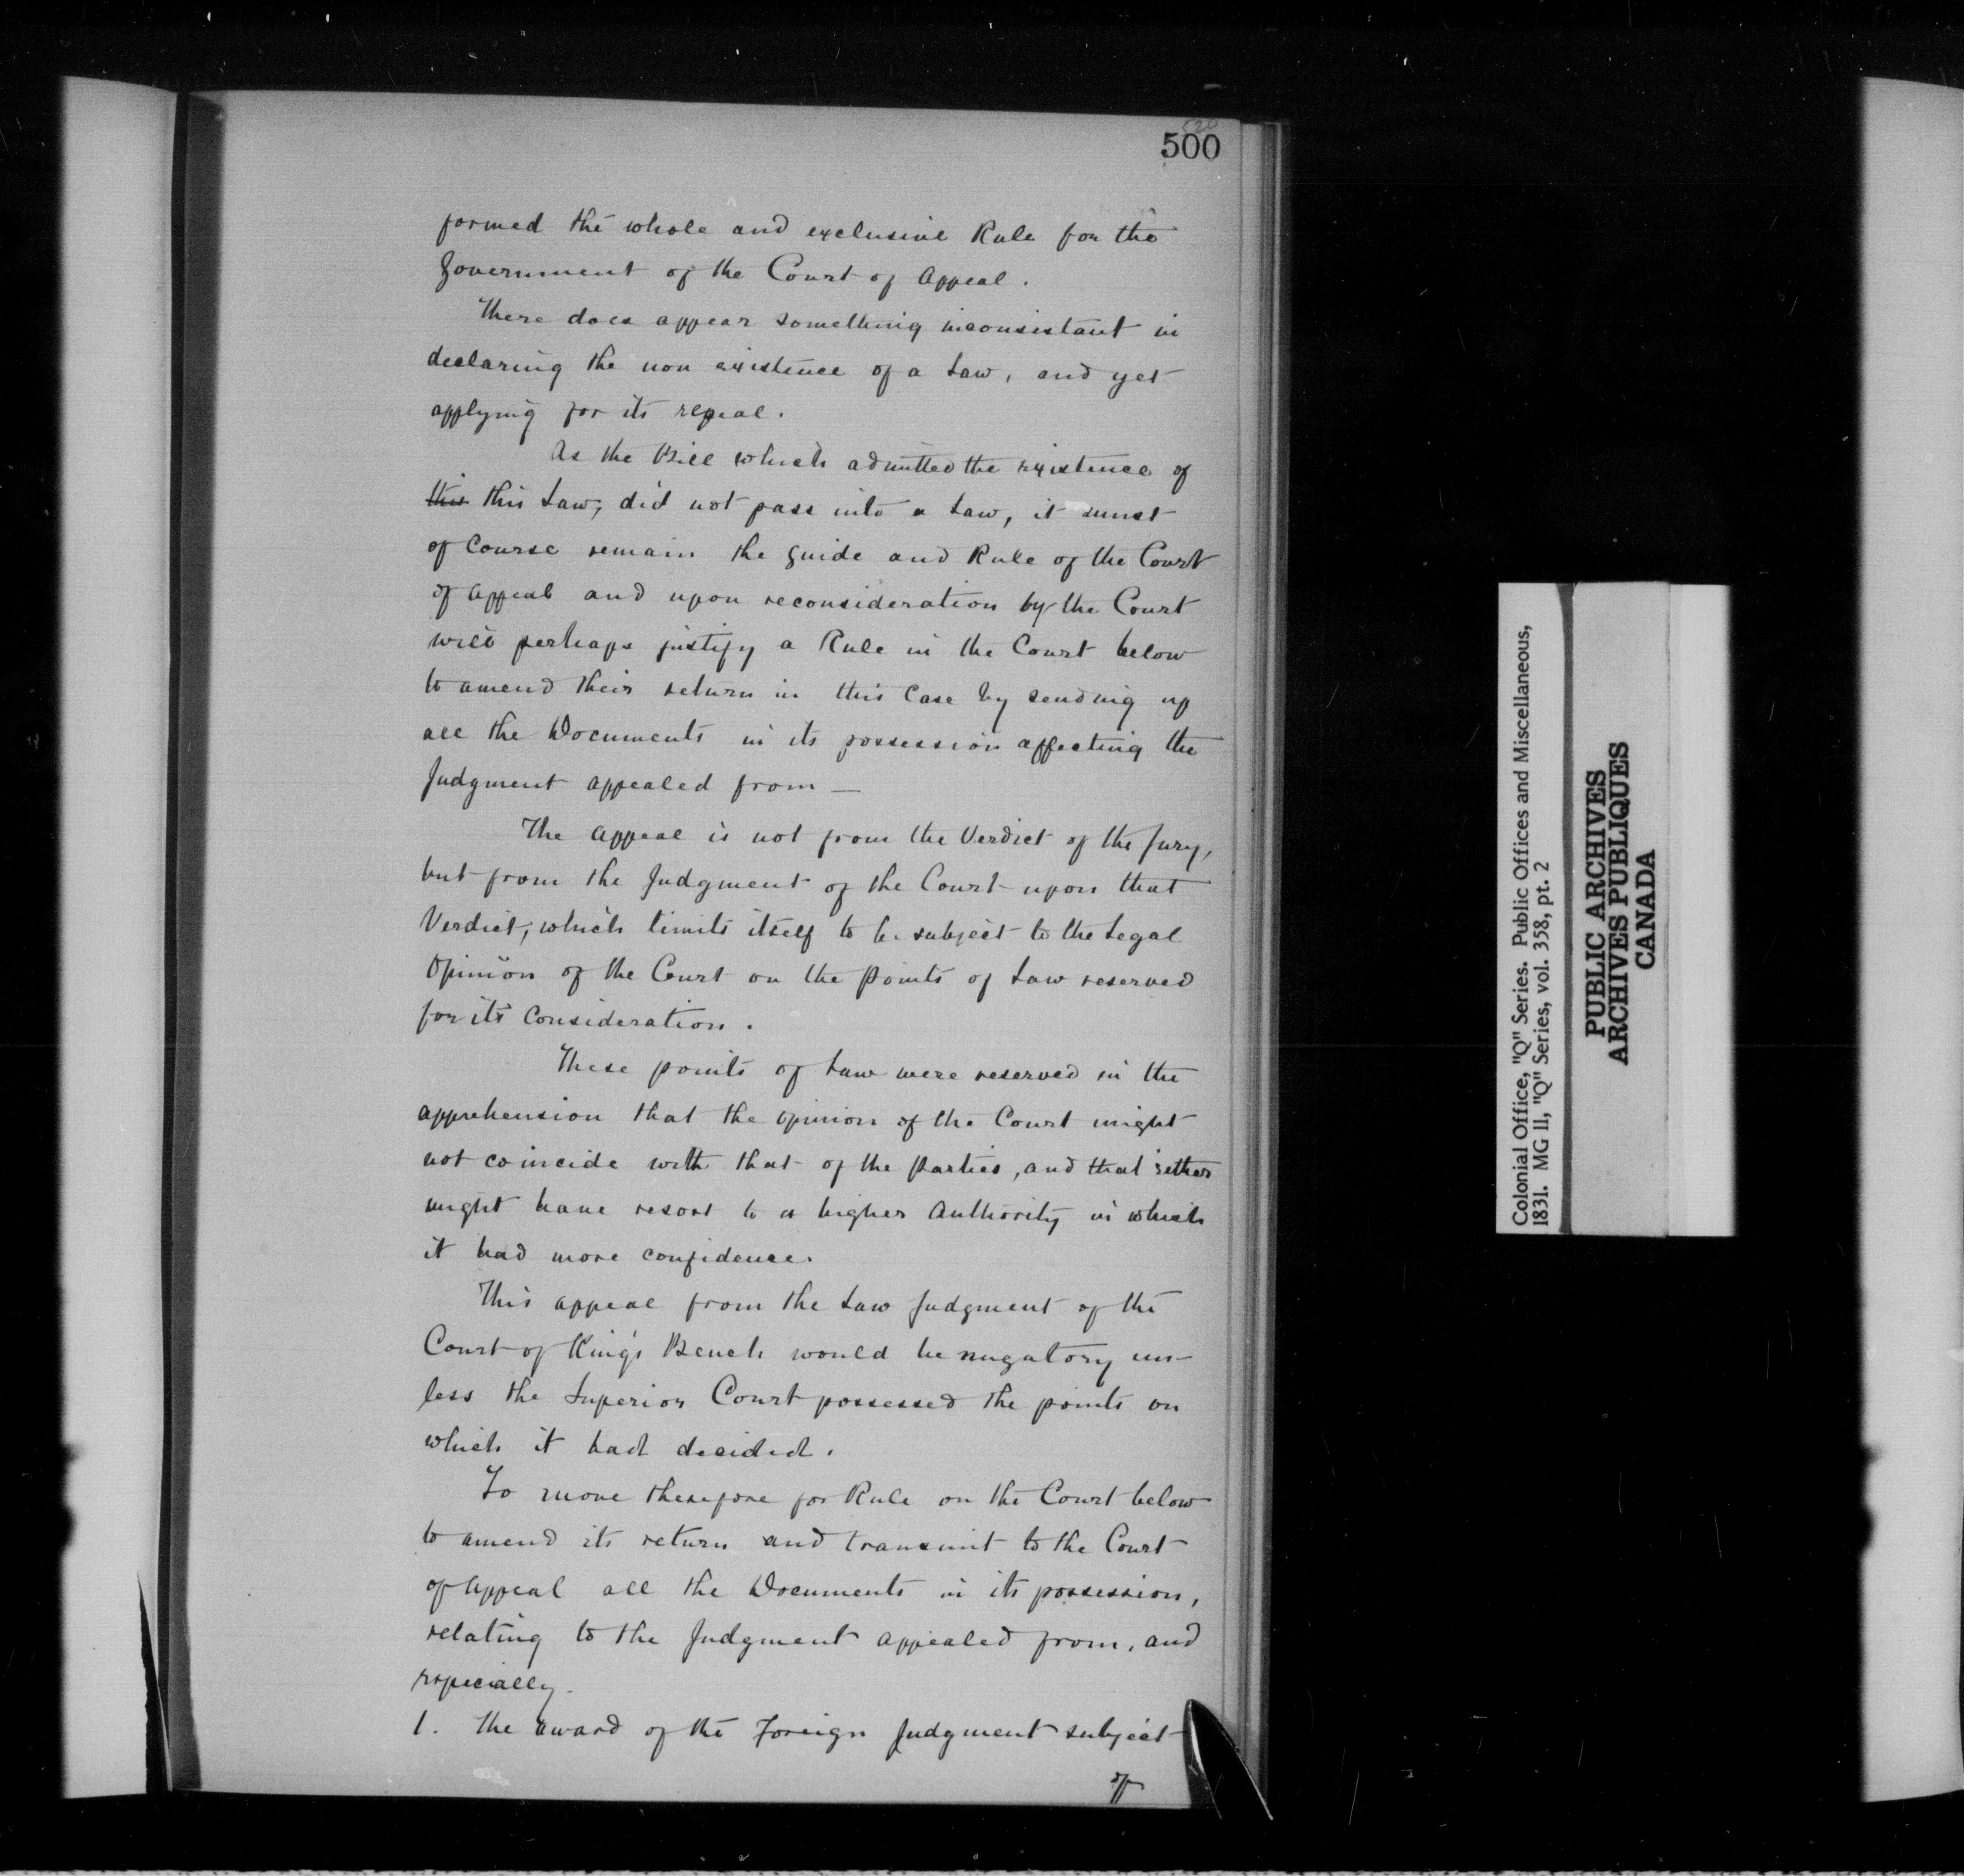 500
formed the whole and exclusive Rule for the
Government of the Court of Appeal.
There does appear something inconsistant in
declaring the non existence of a Law, and yet
applying for its repeal.
As the Bill which admitted the existence of
this this Law, did not pass into a Law, it must
of Course remain the guide and Rule of the Court
of Appeal and upon reconsideration by the Court
will perhaps justify a Rule in the Court below
to amend their return in this Case by sending up
all the Documents in its possession affecting the
Judgment appealed from —
The Appeal is not from the Verdict of the Jury,
but from the Judgment of the Court upon that
Verdict, which limits itself to be subject to the Legal
Opinion of the Court on the points of Law reserved
for its Consideration.
These points of Law were reserved in the
apprehension that the opinion of the Court might
not coincide with that of the Parties, and that either
might have resort to a higher Authority in which
it had more confidence.
This appeal from the Law Judgment of the
Court of King's Bench would be nugatory un-
less the Superior Court possessed the points on
which it had decided.
To move therefore for Rule on the Court below
to amend its return and transmit to the Court
of Appeal all the Documents in its possession,
relating to the Judgment appealed from, and
especially.
1. The award of the Foreign Judgment subject
of
Colonial Office, "Q" Series. Public Offices and Miscellaneous,
1831. MG 11, "Q" Series, vol. 358, pt. 2
PUBLIC ARCHIVES
ARCHIVES PUBLIQUES
CANADA